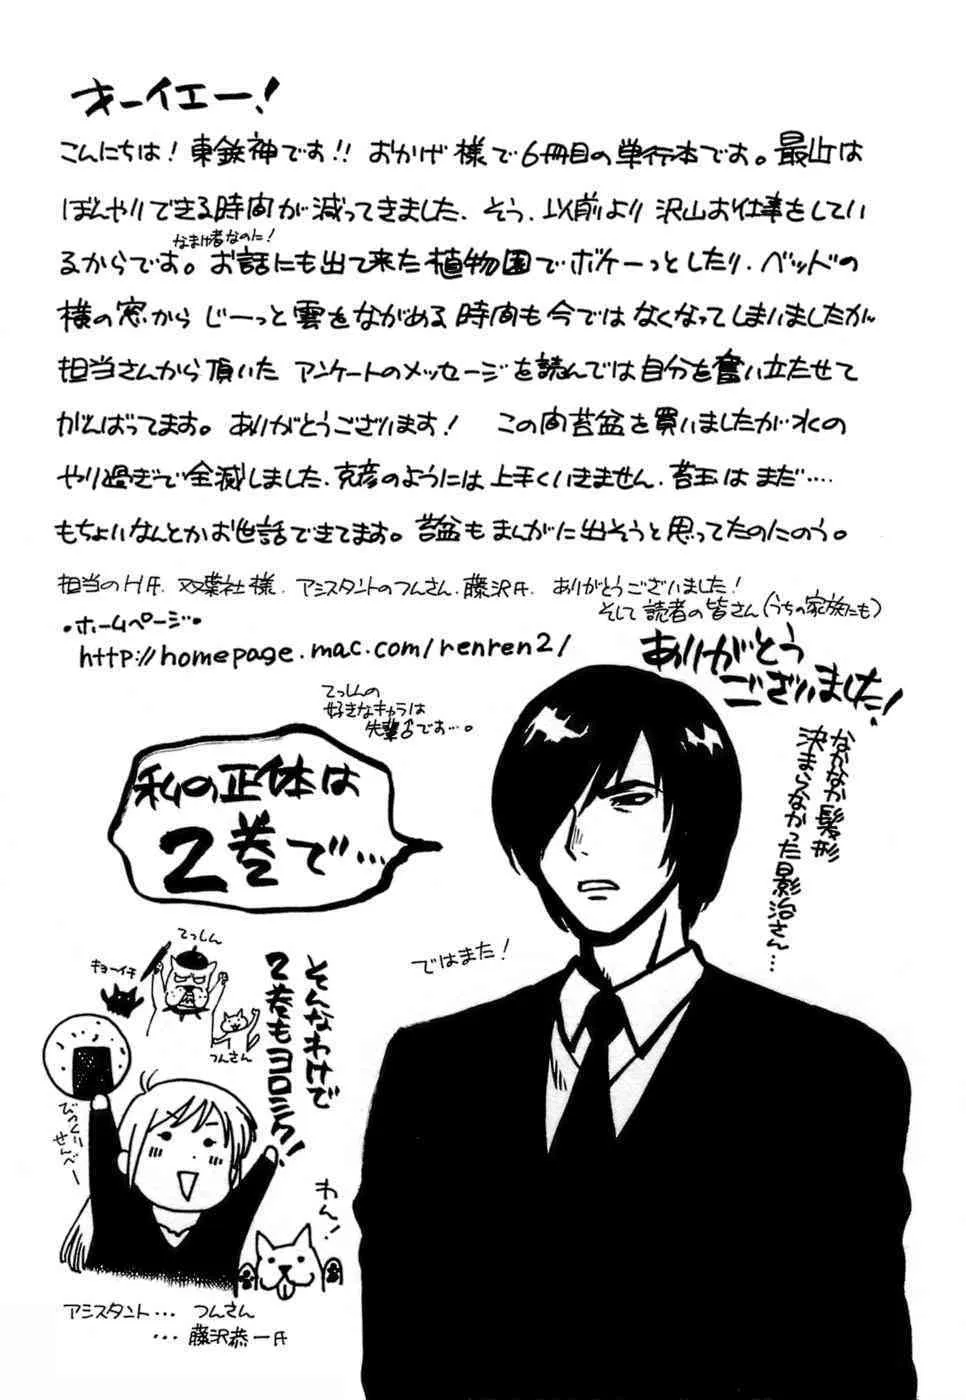 オーイエー！
こんにちは！東鉄神です！！おかげ様で6冊目の単行本です。最近は
ぼんやりできる時間が減ってきました．そう．以前より沢山お仕事をしてい
なまけ者なのに！
るからです。お話にも出て来た植物園でボケーっとしたり．ベッドの
横の窓からじーっと雲をながめる時間も今ではなくなってしまいましたが〜
担当さんから頂いたアンケートのメッセージを読んでは自分を奮い立たせて
がんばってます。ありがとうございます！この間苔盆を買いましたが水の
やり過ぎで全滅しました．克彦のようには上手くいきません．苔玉はまだ‥‥
もちょいなんとかお世話できてます。苔盆もまんがに出そうと思ってたのにのう。
担当のH氏．双葉社様．アシスタントのつんさん．藤沢氏．ありがとうございました！
そして読者の皆さん（うちの家族にも）
ありがとう
ございました！
・ホームページ・
http://homepage.mac.com/renren2/
てっしんの
好きなキャラは
先輩♂です…。
なかなか髪形
決まらなかった影治さん…
私の正体は
2巻で…
ではまた！
てっしん
キョーイチ
つんさん
そんなわけで
2巻もヨロシク！
びっくり
せんべー
わん！
アシスタント…つんさん
…藤沢恭一氏